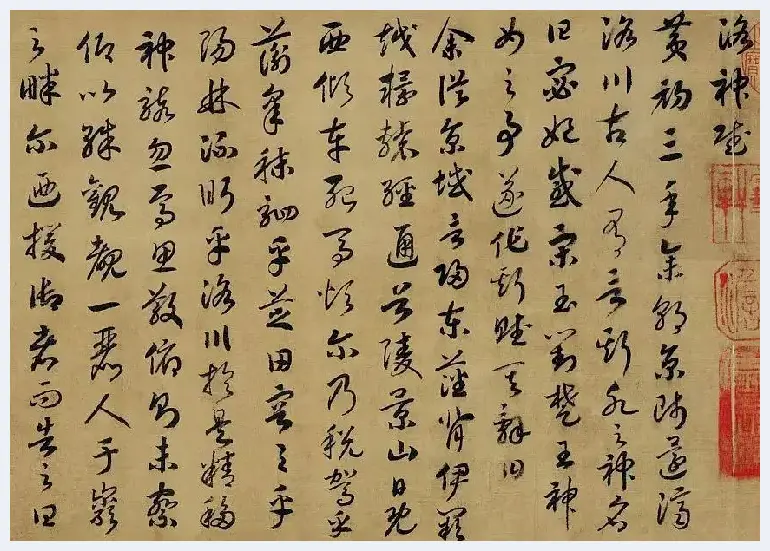 洛神賦
黃初三年余朝京師還濟
洛川古人有言斯水之神名
曰宓妃感宋玉對楚王神
女之事遂作斯賦其辭曰
余從京域言歸東藩背伊闕
越轘轅經通谷陵景山日既
西傾車殆馬煩尔乃稅駕乎
蘅皋秣駟乎芝田容与乎
陽林流眄乎洛川於是精移
神駭忽焉思散俯則未察
仰以殊觀覩一麗人于巖
之畔尔迺援御者而告之曰